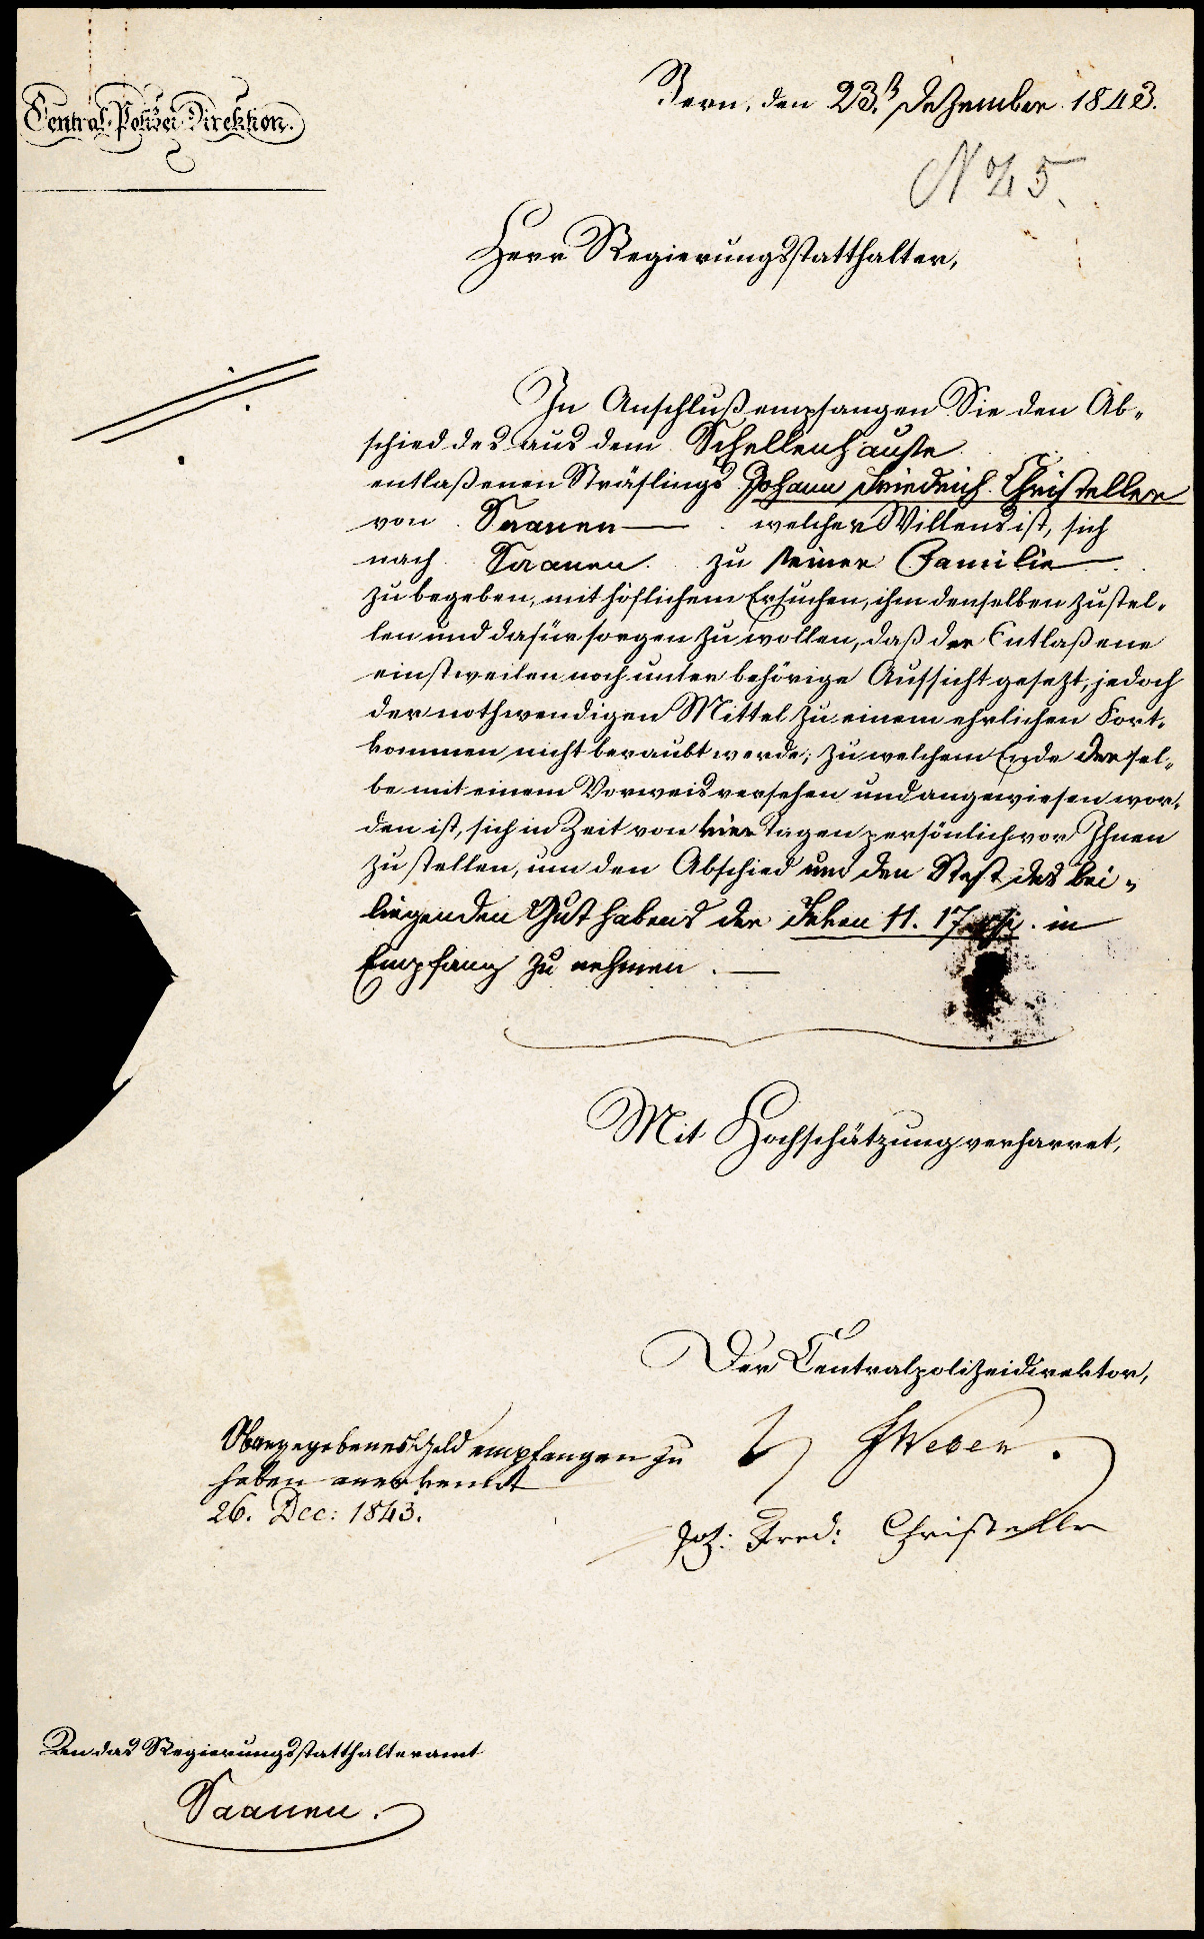 Central-Polizei-Direktion.
Bern, den 23. Dezember 1843.
N 25.
Herr Regierungsstatthalter,
In Anschluß empfangen Sie den Ab-
schied des aus dem Schellenhause
entlaßenen Sträflings Johann Friedrich Christeller
von Saanen welcher Willens ist, sich
nach Saanen zu seiner Familie
zu begeben, mit höflichem Ersuchen, ihm denselben zustel-
len und dafür sorgen zu wollen, daß der Entlaßene
einstweilen noch unter behörige Aufsicht gesezt, jedoch
der nothwendigen Mittel zu einem ehrlichen Fort-
kommen nicht beraubt werde; zu welchem Ende dersel-
be mit einem Vorweis versehen und angewiesen wor-
den ist, sich in Zeit von vier Tagen persönlich vor Ihnen
zu stellen, um den Abschied und den Rest des bei-
liegenden Guthabens der 11. 17 in
Empfang zu nehmen.
Mit Hochschätzung verharret,
Der Centralpolizeidirektor,
Weber.
Obangegebenes Geld empfangen zu
haben anerkennt
26. Dec: 1843.
Joh: Fred: Christeller
An das Regierungsstatthalteramt
Saanen.